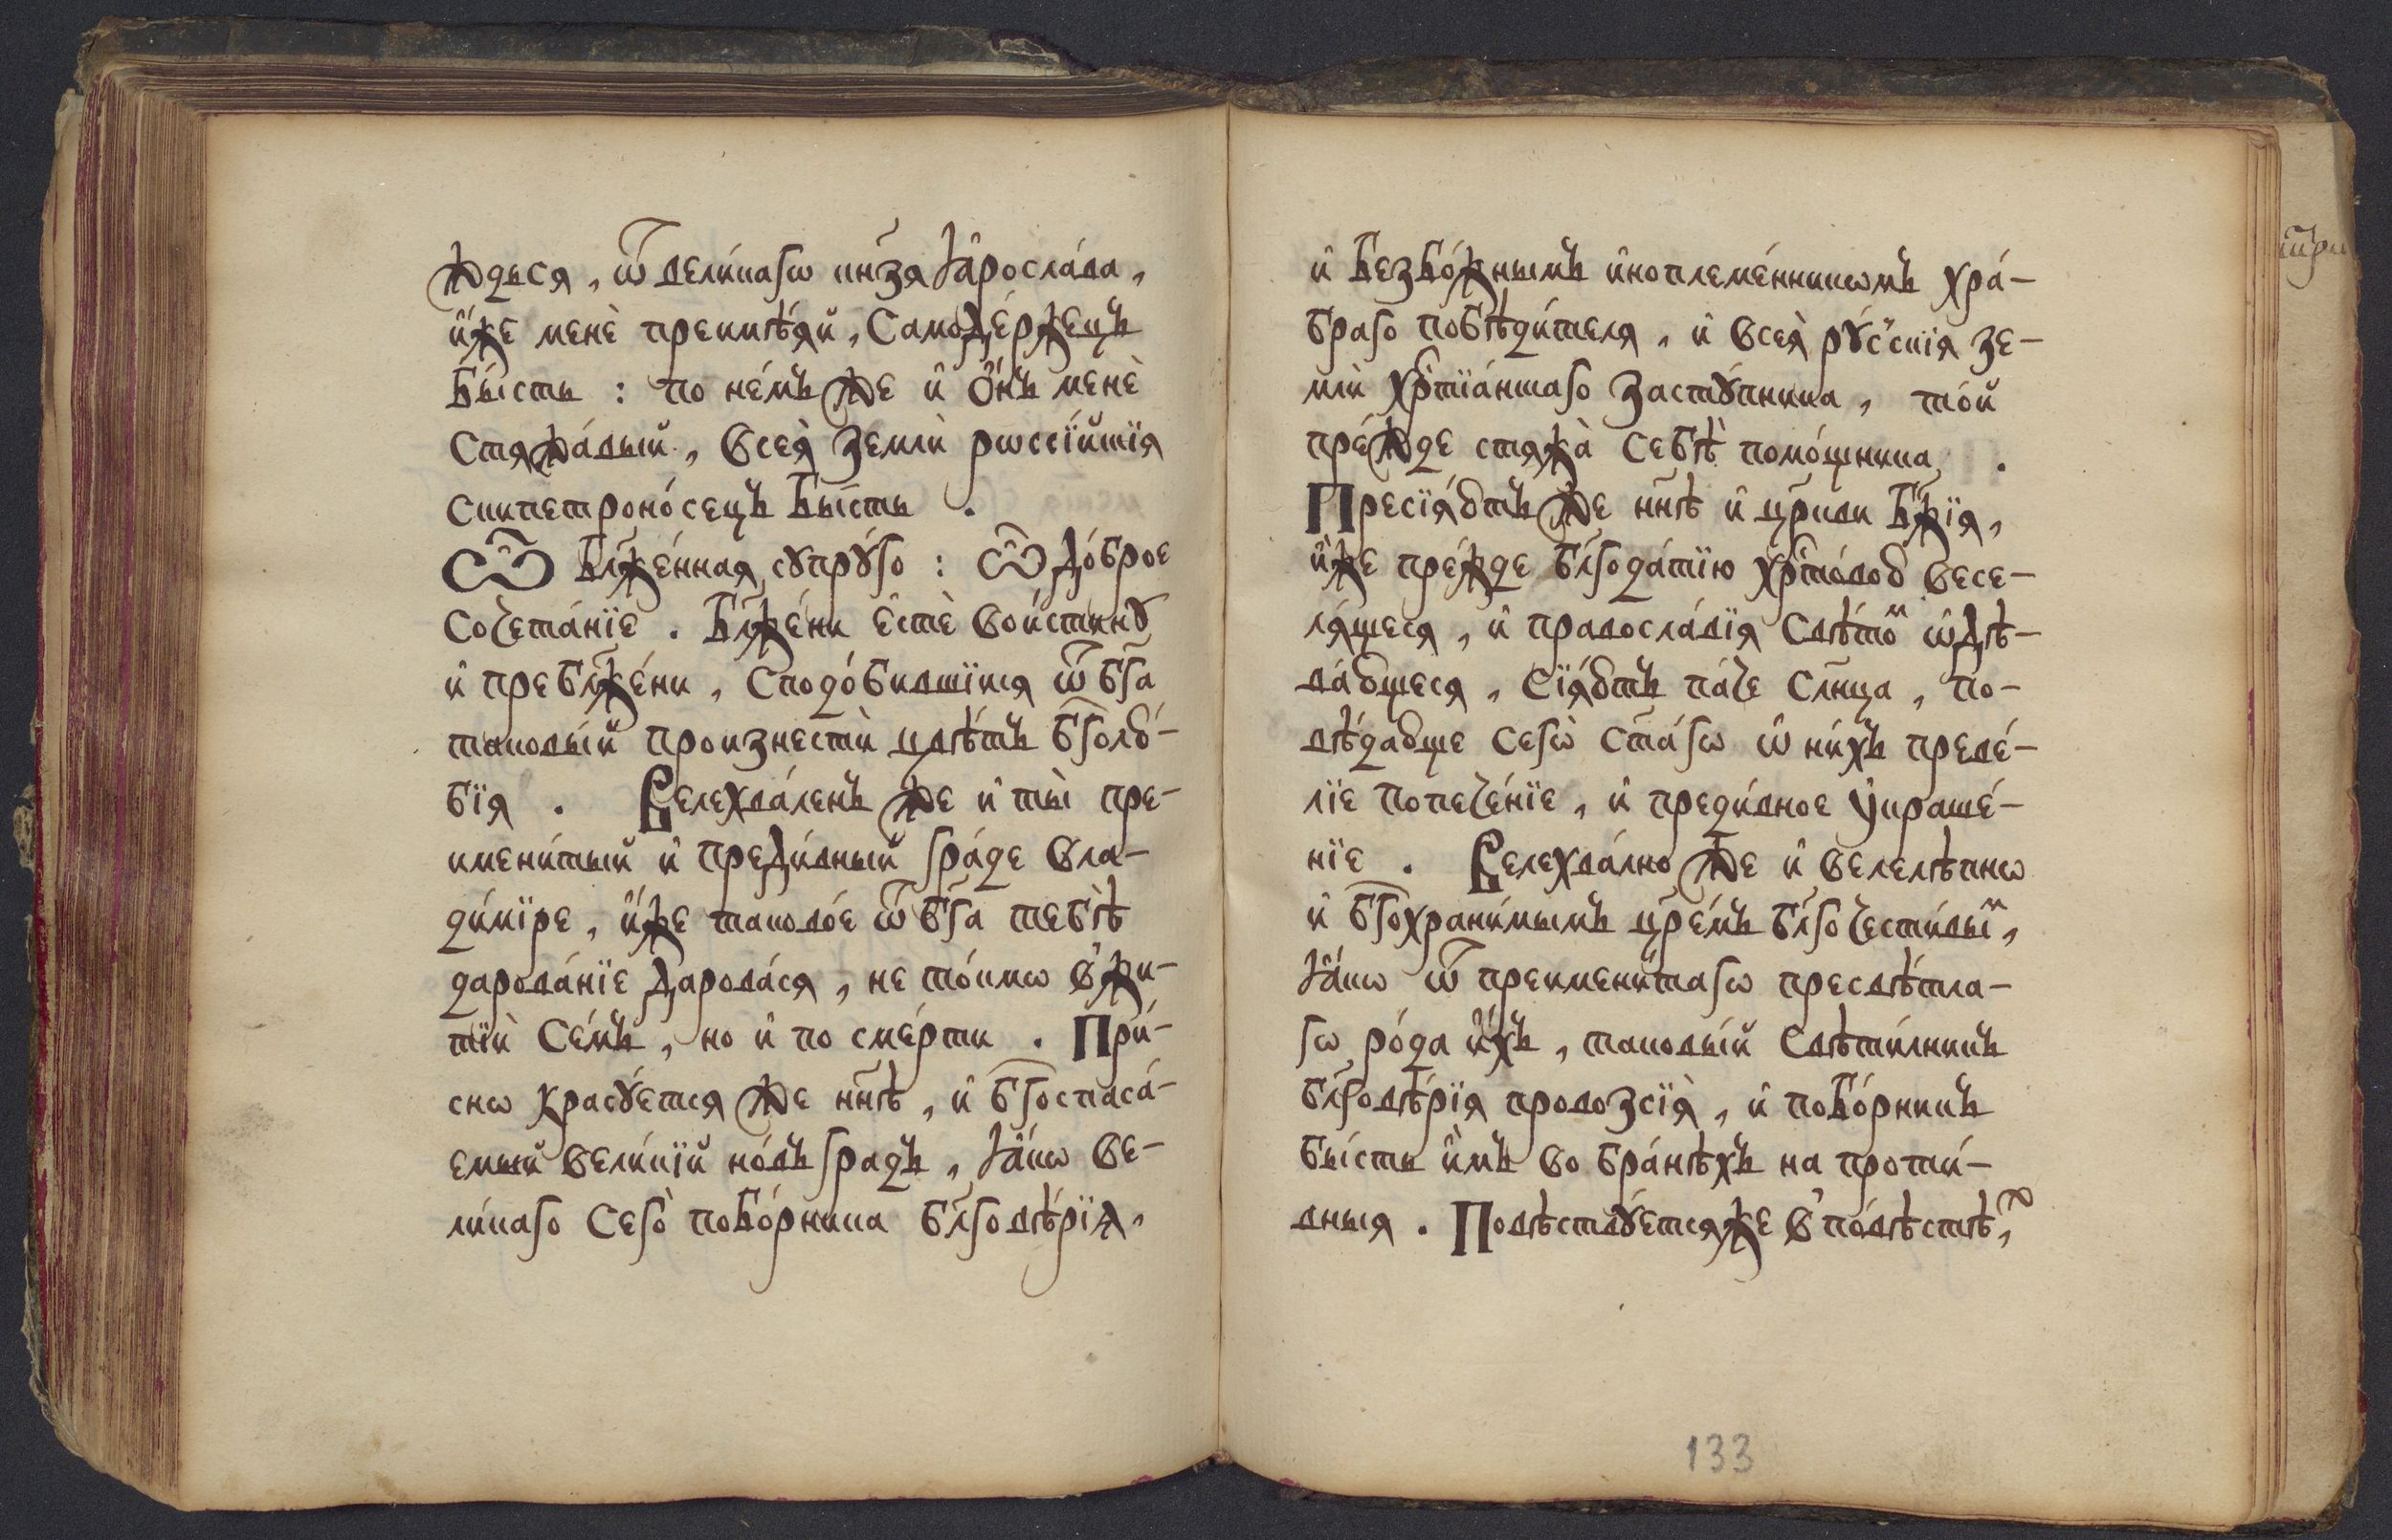 ждься, ѿ вели́кагѡ кн҃зя Ꙗ҆росла́ва,
и҆́же менѐ преимѣ́яй, Самоде́ржецъ
Бы́сть : по не́мъ же и҆ Ѻ҆́нъ менѐ
Стяжа́вый, Всея̀ Землѝ рѡссі́йстїя
Скипетроно́сецъ Бы́сть .
Ѽ Бл҃же́нная сꙋпрꙋ́го : Ѽ До́брое
Сочета́нїе . Бл҃же́ни є҆стѐ Вои́стинꙋ
и҆ пребл҃же́ни, Сподо́бившїися ѿ бг҃а
таковы́й произнестѝ цвѣ́тъ бг҃олю́-
бїя . Велехва́ленъ же и҆ ты̀ пре-
имени́тый и҆ преди́вный гра́де Вла-
ди́мїре, и҆́же таково́е ѿ бг҃а тебѣ̀
дарова́нїе Дарова́ся, не то́кмѡ в̾жи-
тїѝ Се́мъ, но и҆ по сме́рти . При́-
снѡ красꙋ́ется же нн҃ѣ, и҆ бг҃оспаса́-
емый вели́кїй но́въ градъ, Ꙗ҆́кѡ ве-
ли́каго Сего̀ побо́рника бл҃говѣ́рїя,
и҆ безбо́жнымъ и҆ноплеме́нникѡмъ хра́-
браго побѣди́теля, и҆ всея̀ рꙋ́сскїя зе-
млѝ хр҃тїа́нскаго застꙋ́пника, то́й
пре́жде стяжа̀ Себѣ̀ помо́щника .
Пресїя́ютъ же нн҃ѣ и҆ цр҃кви Бж҃їя,
и҆́же пре́жде бл҃года́тїю хр҃то́вою весе-
ля́щеся, и҆ правосла́вїя Свѣ́томъ ѡ҆дѣ-
ва́ющеся, Сїя́ютъ па́че Сл҃нца, по-
вѣ́дающе Сегѡ̀ ст҃а́гѡ ѡ҆ ни́хъ преве́-
лїе попече́нїе, и҆ преди́вное Ꙋ҆краше́-
нїе . Велехва́лно же и҆ велелѣ́пнѡ
и҆ бг҃охрани́мымъ цр҃е́мъ бл҃гочести́вымъ,
Ꙗ҆́кѡ ѿ преимени́тагѡ пресвѣ́тла-
гѡ ро́да и҆́хъ, таковы́й Свѣти́лникъ
бл҃говѣ́рїя провозсїя̀, и҆ побо́рникъ
бы́сть и҆̀мъ во бра́нѣхъ на проти́-
вныя . Повѣствꙋ́етсяже в̾по́вѣстѣ,ⷯ
133